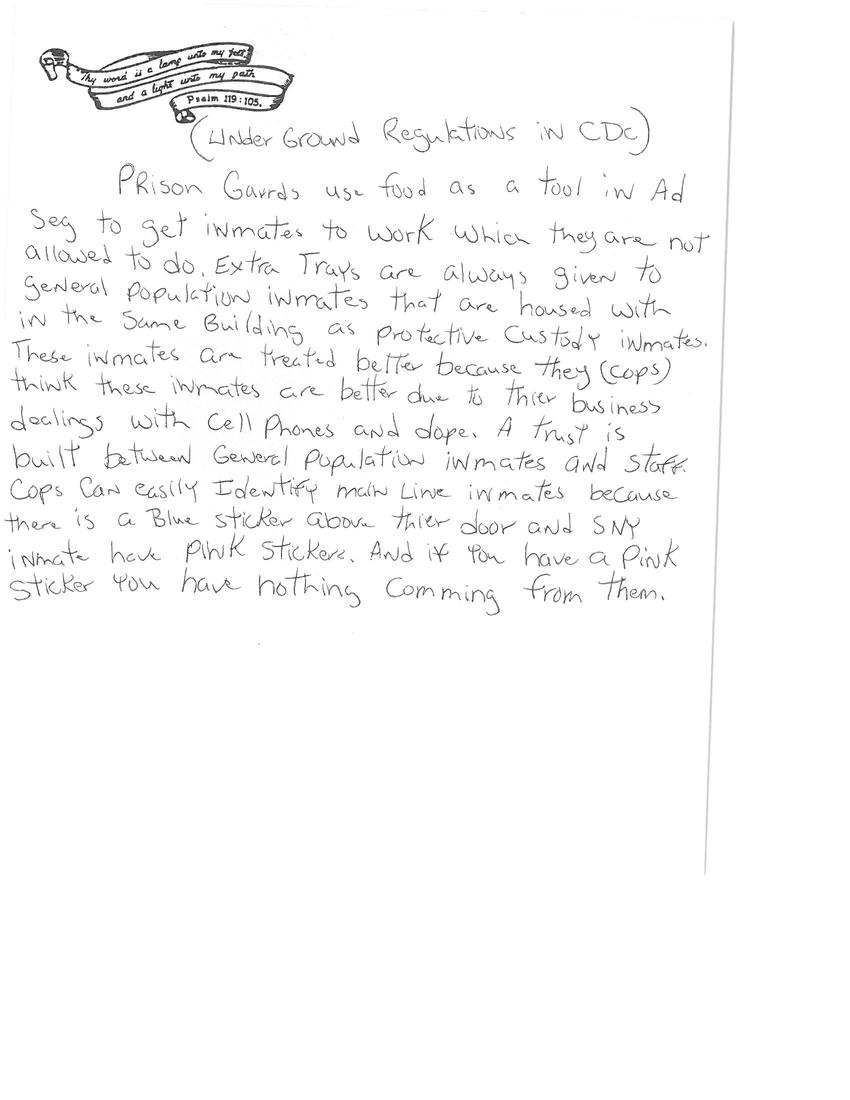 Thy word is a lamp unto my feet
and a light unto my path
Psalm 119:105.
(Under Ground Regulations in CDC)
Prison Gaurds use food as a tool in Ad
Seg to get inmates to work which they are not
allowed to do. Extra Trays are always given to
General Population inmates that are housed with
in the Same Building as Protective Custody inmates.
These inmates are treated better because they (cops)
think these inmates are better due to thier business
dealings with Cell Phones and dope. A trust is
built between General Population inmates and staff.
Cops Can easily Identify main Line inmates because
there is a Blue sticker above thier door and SNY
inmate have Pink Stickers. And if You have a Pink
Sticker You have nothing Comming from them.